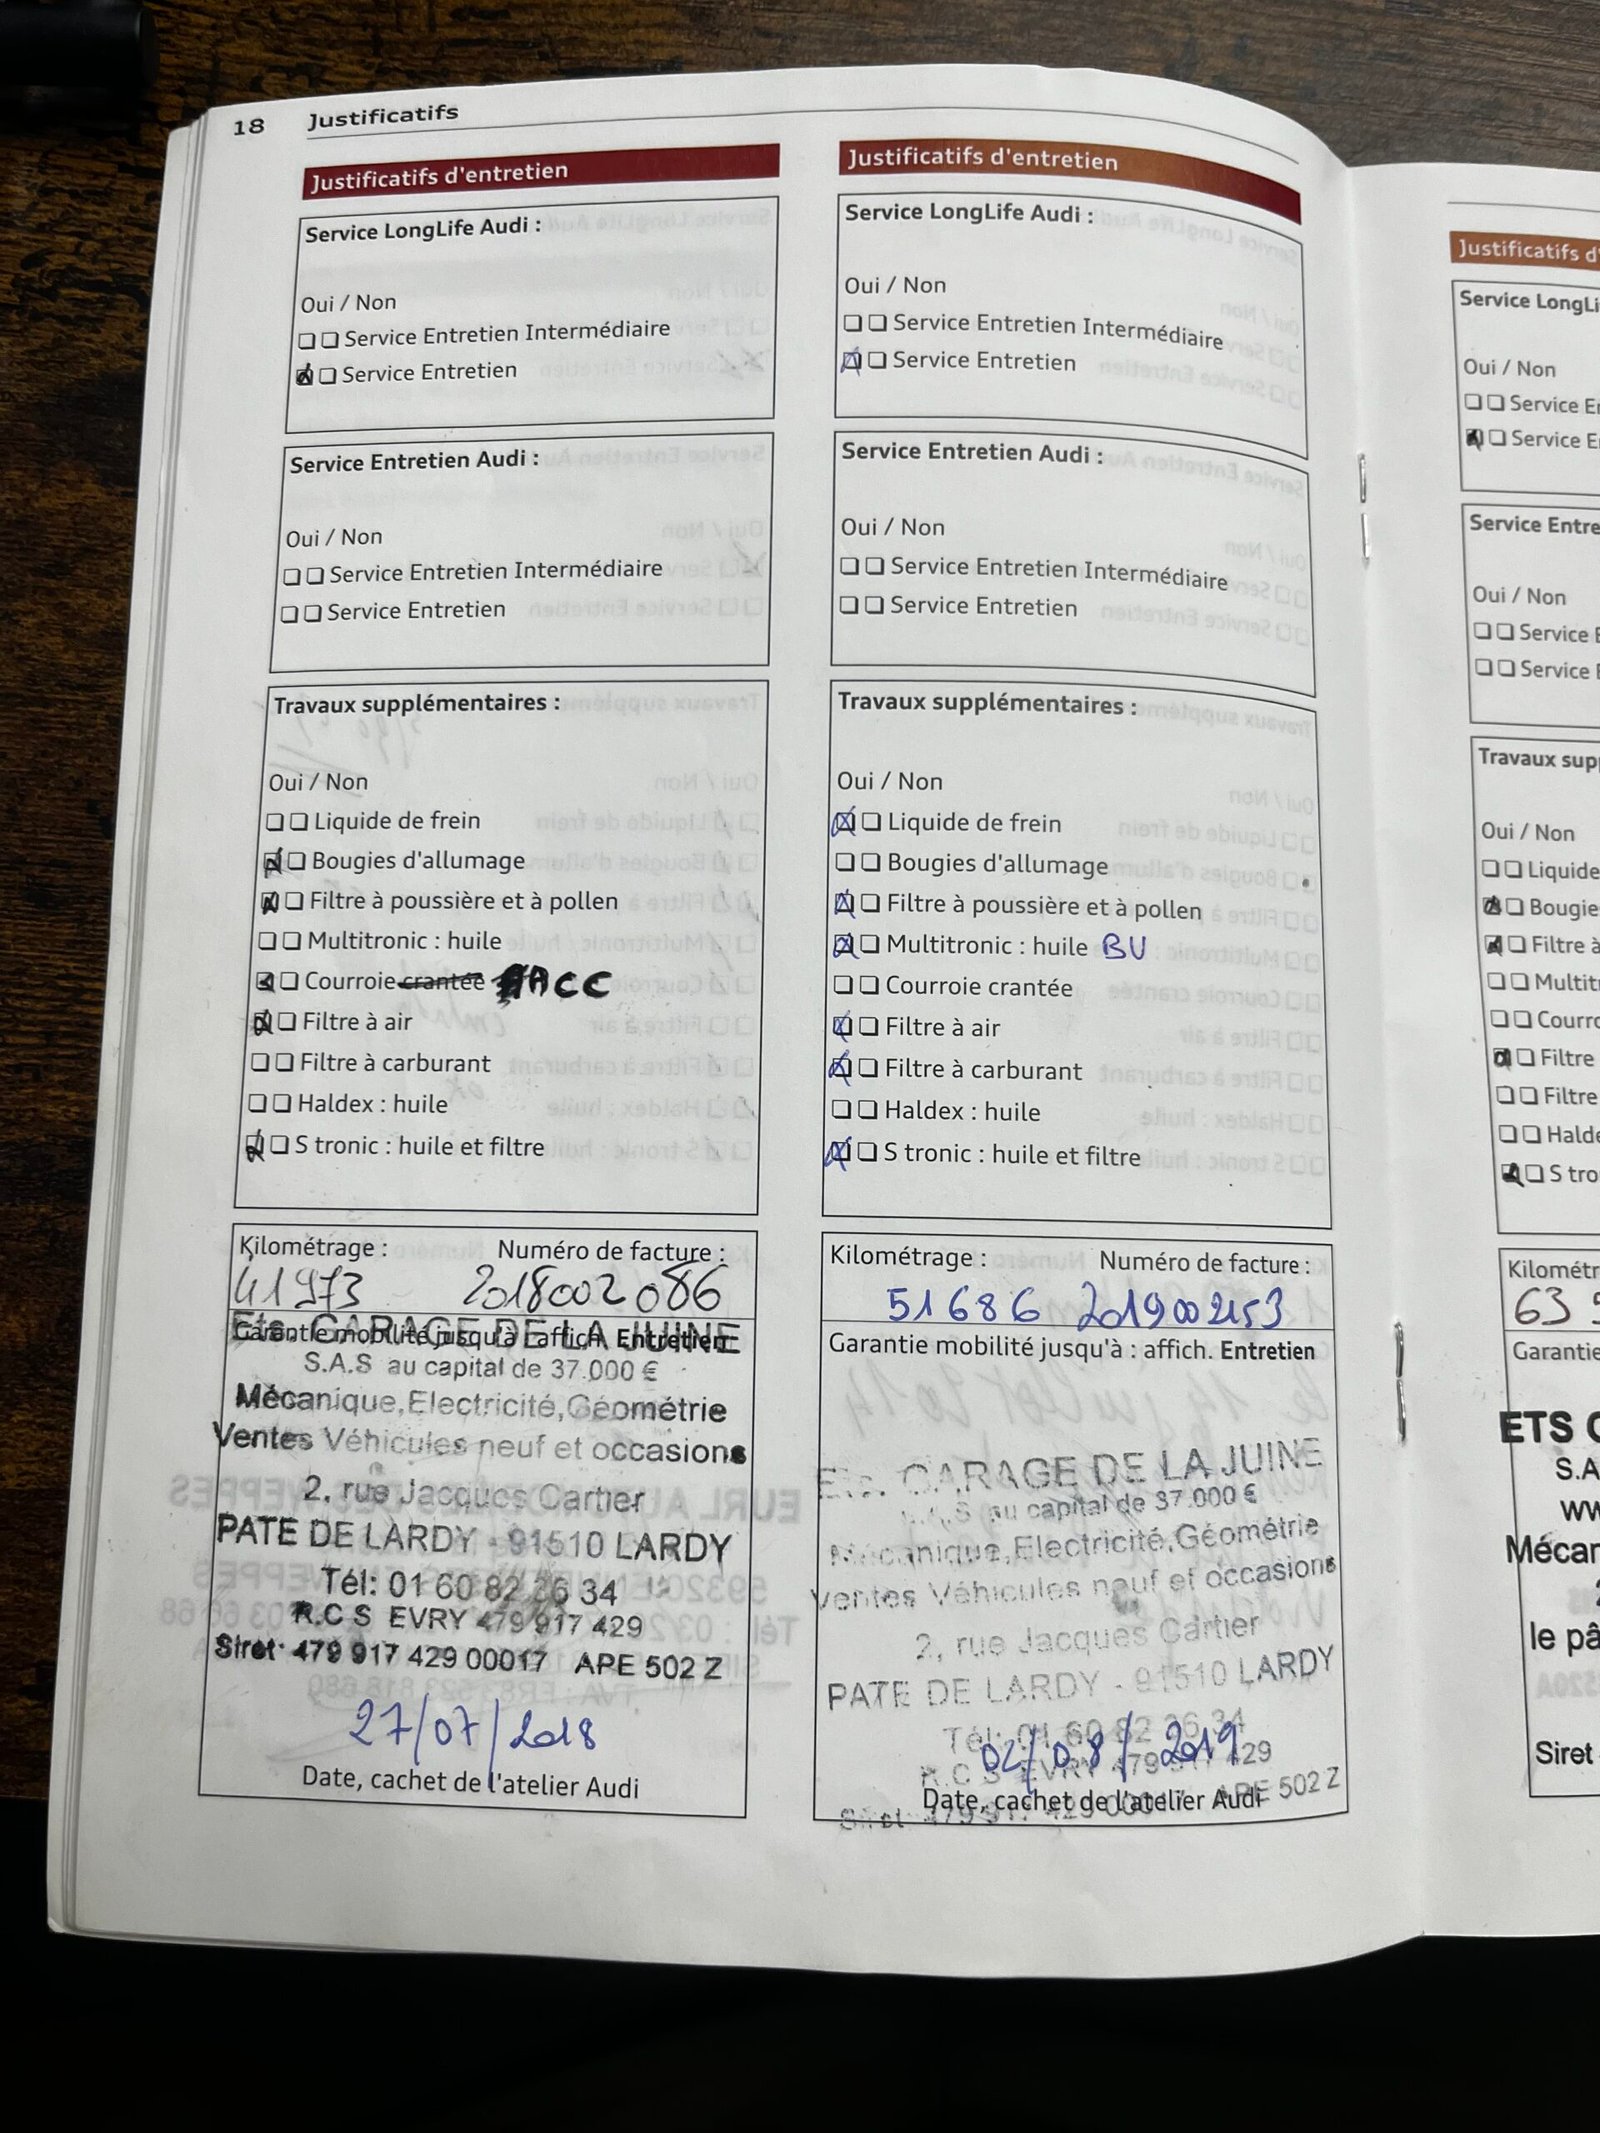 18 Justificatifs
Justificatifs d'entretien
Service LongLife Audi :
Oui / Non
Service Entretien Intermédiaire
Service Entretien
Service Entretien Audi :
Oui / Non
Service Entretien Intermédiaire
Service Entretien
Travaux supplémentaires :
Oui / Non
Liquide de frein
Bougies d'allumage
Filtre à poussière et à pollen
Multitronic : huile
Courroie crantée ACC
Filtre à air
Filtre à carburant
Haldex : huile
S tronic : huile et filtre
Kilométrage : Numéro de facture :
41973 2018002086
Garantie mobilité jusqu'à : affich. Entretien
Ets. GARAGE DE LA JUINE
S.A.S au capital de 37.000 €
Mécanique,Electricité,Géométrie
Ventes Véhicules neuf et occasions
2, rue Jacques Cartier
PATE DE LARDY - 91510 LARDY
Tél: 01 60 82 26 34
R.C S EVRY 479 917 429
Siret 479 917 429 00017 APE 502 Z
27/07/2018
Date, cachet de l'atelier Audi
Justificatifs d'entretien
Service LongLife Audi :
Oui / Non
Service Entretien Intermédiaire
Service Entretien
Service Entretien Audi :
Oui / Non
Service Entretien Intermédiaire
Service Entretien
Travaux supplémentaires :
Oui / Non
Liquide de frein
Bougies d'allumage
Filtre à poussière et à pollen
Multitronic : huile BV
Courroie crantée
Filtre à air
Filtre à carburant
Haldex : huile
S tronic : huile et filtre
Kilométrage : Numéro de facture :
51686 2019002153
Garantie mobilité jusqu'à : affich. Entretien
Ets. GARAGE DE LA JUINE
S.A.S au capital de 37.000 €
Mécanique,Electricité,Géométrie
Ventes Véhicules neuf et occasions
2, rue Jacques Cartier
PATE DE LARDY - 91510 LARDY
Tél: 01 60 82 26 34
02/08/2019
R.C S EVRY 479 917 429
Date, cachet de l'atelier Audi
Siret 479 917 429 00017 APE 502 Z
Justificatifs d'
Service LongLi
Oui / Non
Service E
Service E
Service Entre
Oui / Non
Service
Service
Travaux sup
Oui / Non
Liquide
Bougie
Filtre à
Multit
Courr
Filtre
Filtre
Halde
S tro
Kilométr
63
Garantie
ETS
S.A
ww
Mécan
le pâ
Siret